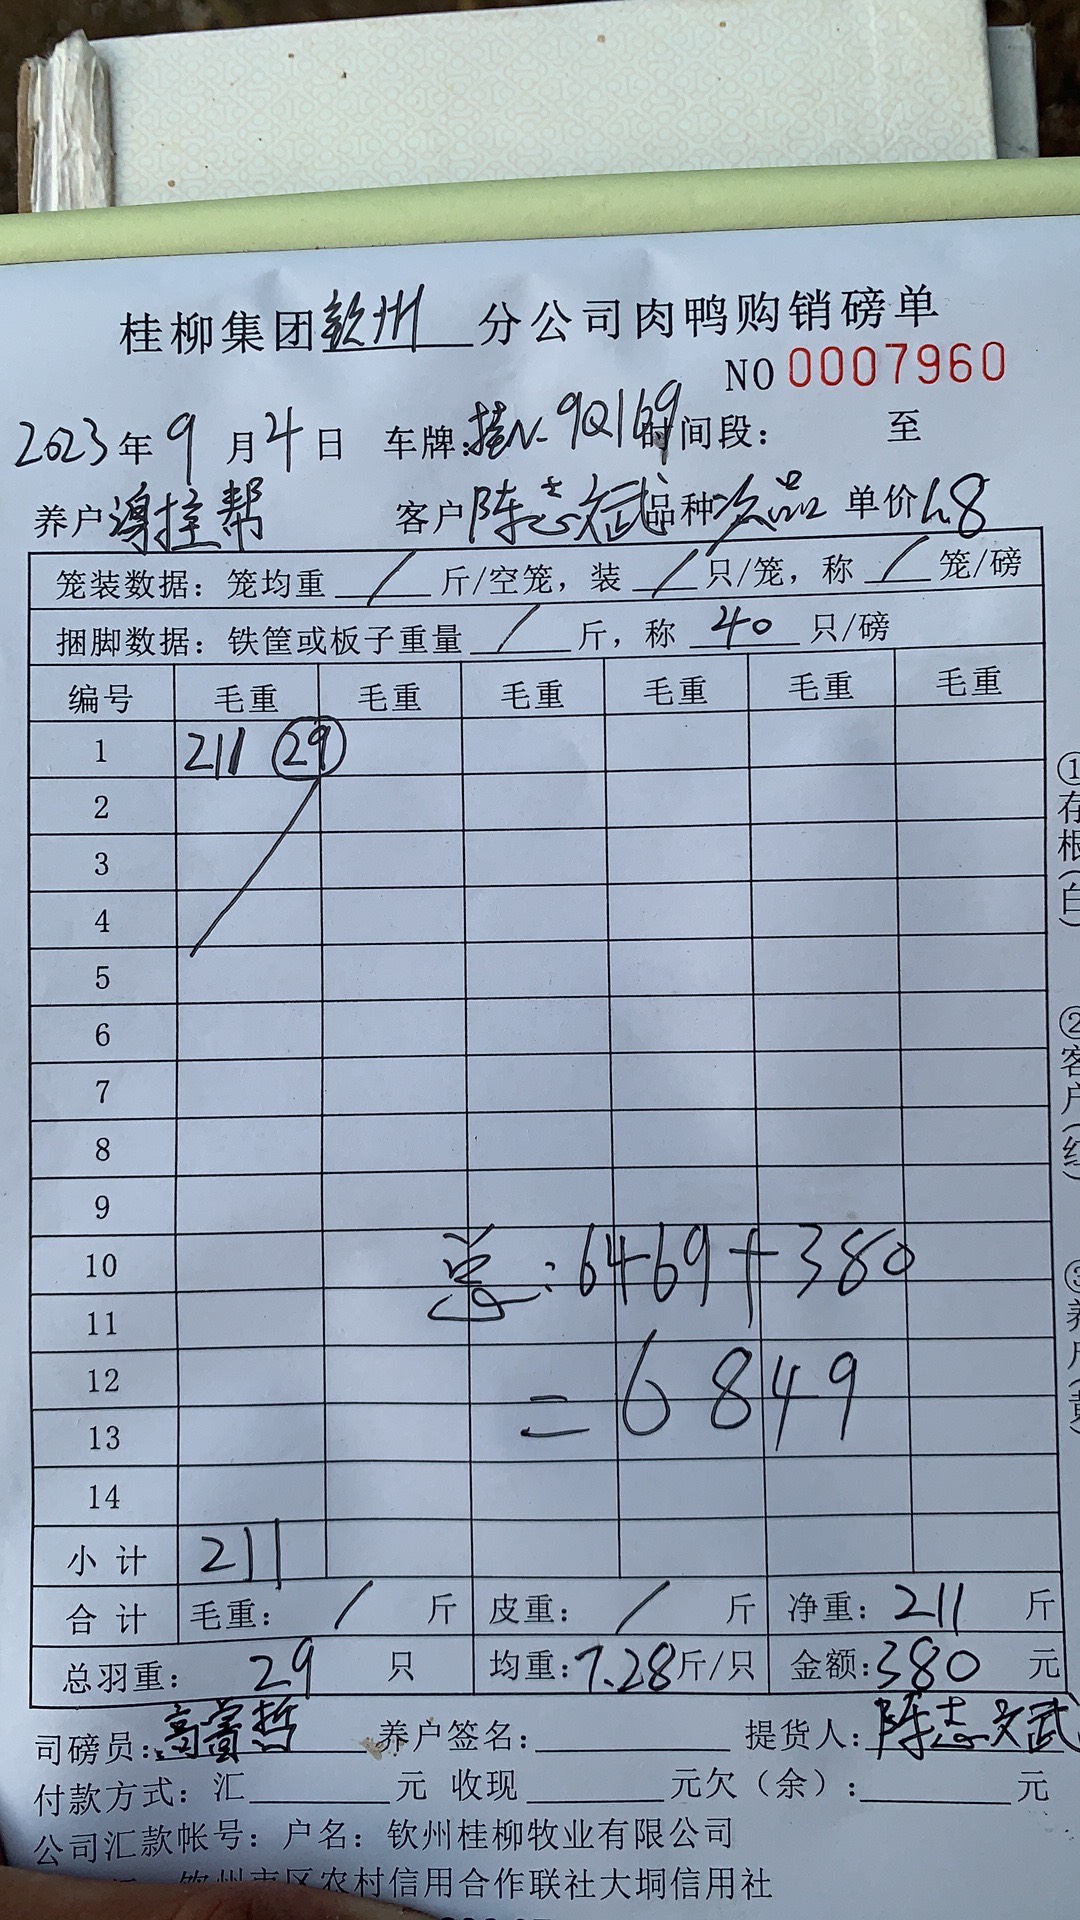 桂柳集团钦州分公司肉鸭购销磅单
NO 0007960
2023年9月4日 车牌:桂N-9Q169 时间段: 至
养户 客户陈志斌 品种次品 单价1.8
笼装数据: 笼均重 / 斤/空笼, 装 / 只/笼, 称 / 笼/磅
捆脚数据: 铁筐或板子重量 / 斤, 称 40 只/磅
编号 毛重 毛重 毛重 毛重 毛重 毛重
1 211 29
2
3
4
5
6
7
8
9
10 总:6469+380
11
12 =6849
13
14
小计 211
合计 毛重: / 斤 皮重: / 斤 净重: 211 斤
总羽重: 29 只 均重:7.28斤/只 金额:380 元
司磅员: 养户签名: 提货人:陈志斌
付款方式: 汇 元 收现 元欠(余): 元
公司汇款帐号: 户名: 钦州桂柳牧业有限公司
钦州市区农村信用合作联社大垌信用社
①存根(白)
②客户(红)
③养户(黄)